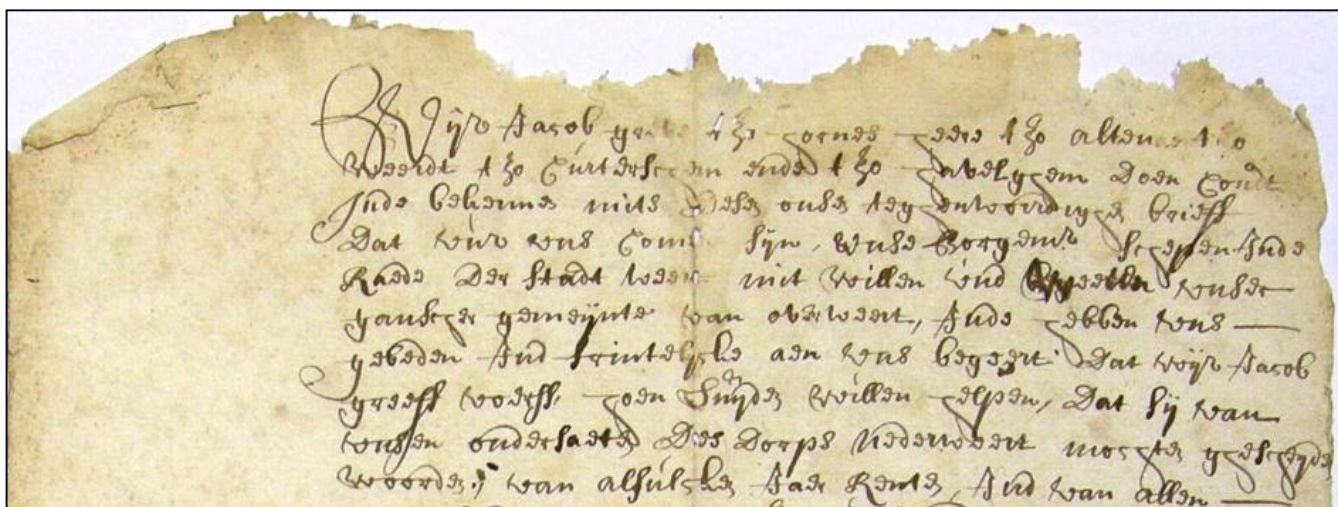 Wijr Jacob greve tzo hornes heere tzo altena tzo
weerdt tzo Curterschem ende tzo havelghem Doen Condt
Inde bekennen mits desen onsen teghenwoordigen brieff
Dat voir vens Comen sijn, vense Borgemr schepen Inde
Raede Der stadt weert mit willen vnd weeten venser
gantscher gemeijnte van overweert, Inde hebben vens
gebeden Ind frintelijcke aen vens begeert Dat wijr Jacob
greeff voerss. hoen willen helpen, Dat sij van
vensen ondersaeten Des Dorps Nederweert mochten ghescheijden
woorden; van alsulcken Jaer Renten, Ind van allen